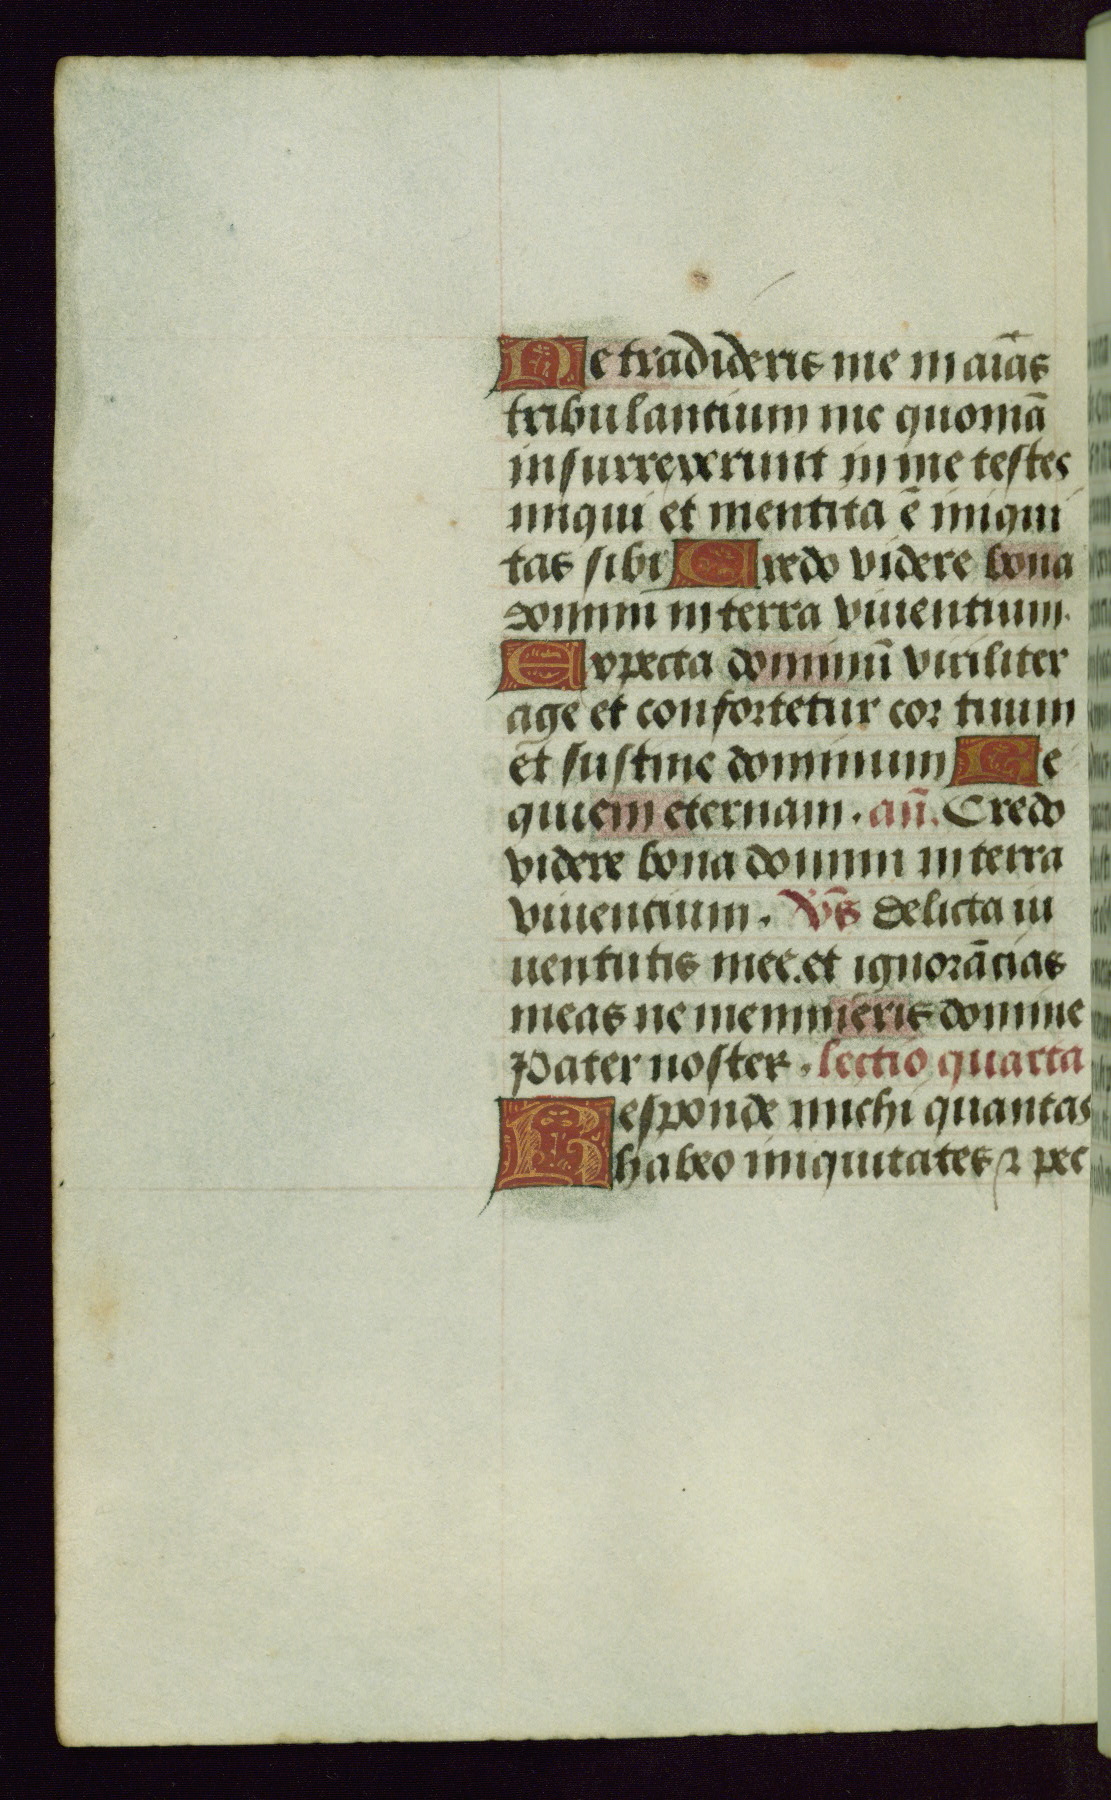 Ne tradideris me in aīas
tribulantium me quoniā
insurrexerunt in me testes
iniqui et mentita ē iniqui
tas sibi Credo videre bona
domini in terra viuentium.
Expecta dominū viriliter
age et confortetur cor tuum
et sustine dominum Re
quiem eternam. añ. Credo
videre bona domini in terra
viuentium. Vs̄ delicta iu
uentutis mee. et ignorācias
meas ne memineris domine
Pater noster. lectio quarta
Responde michi quantas
habeo iniquitates ⁊ pec